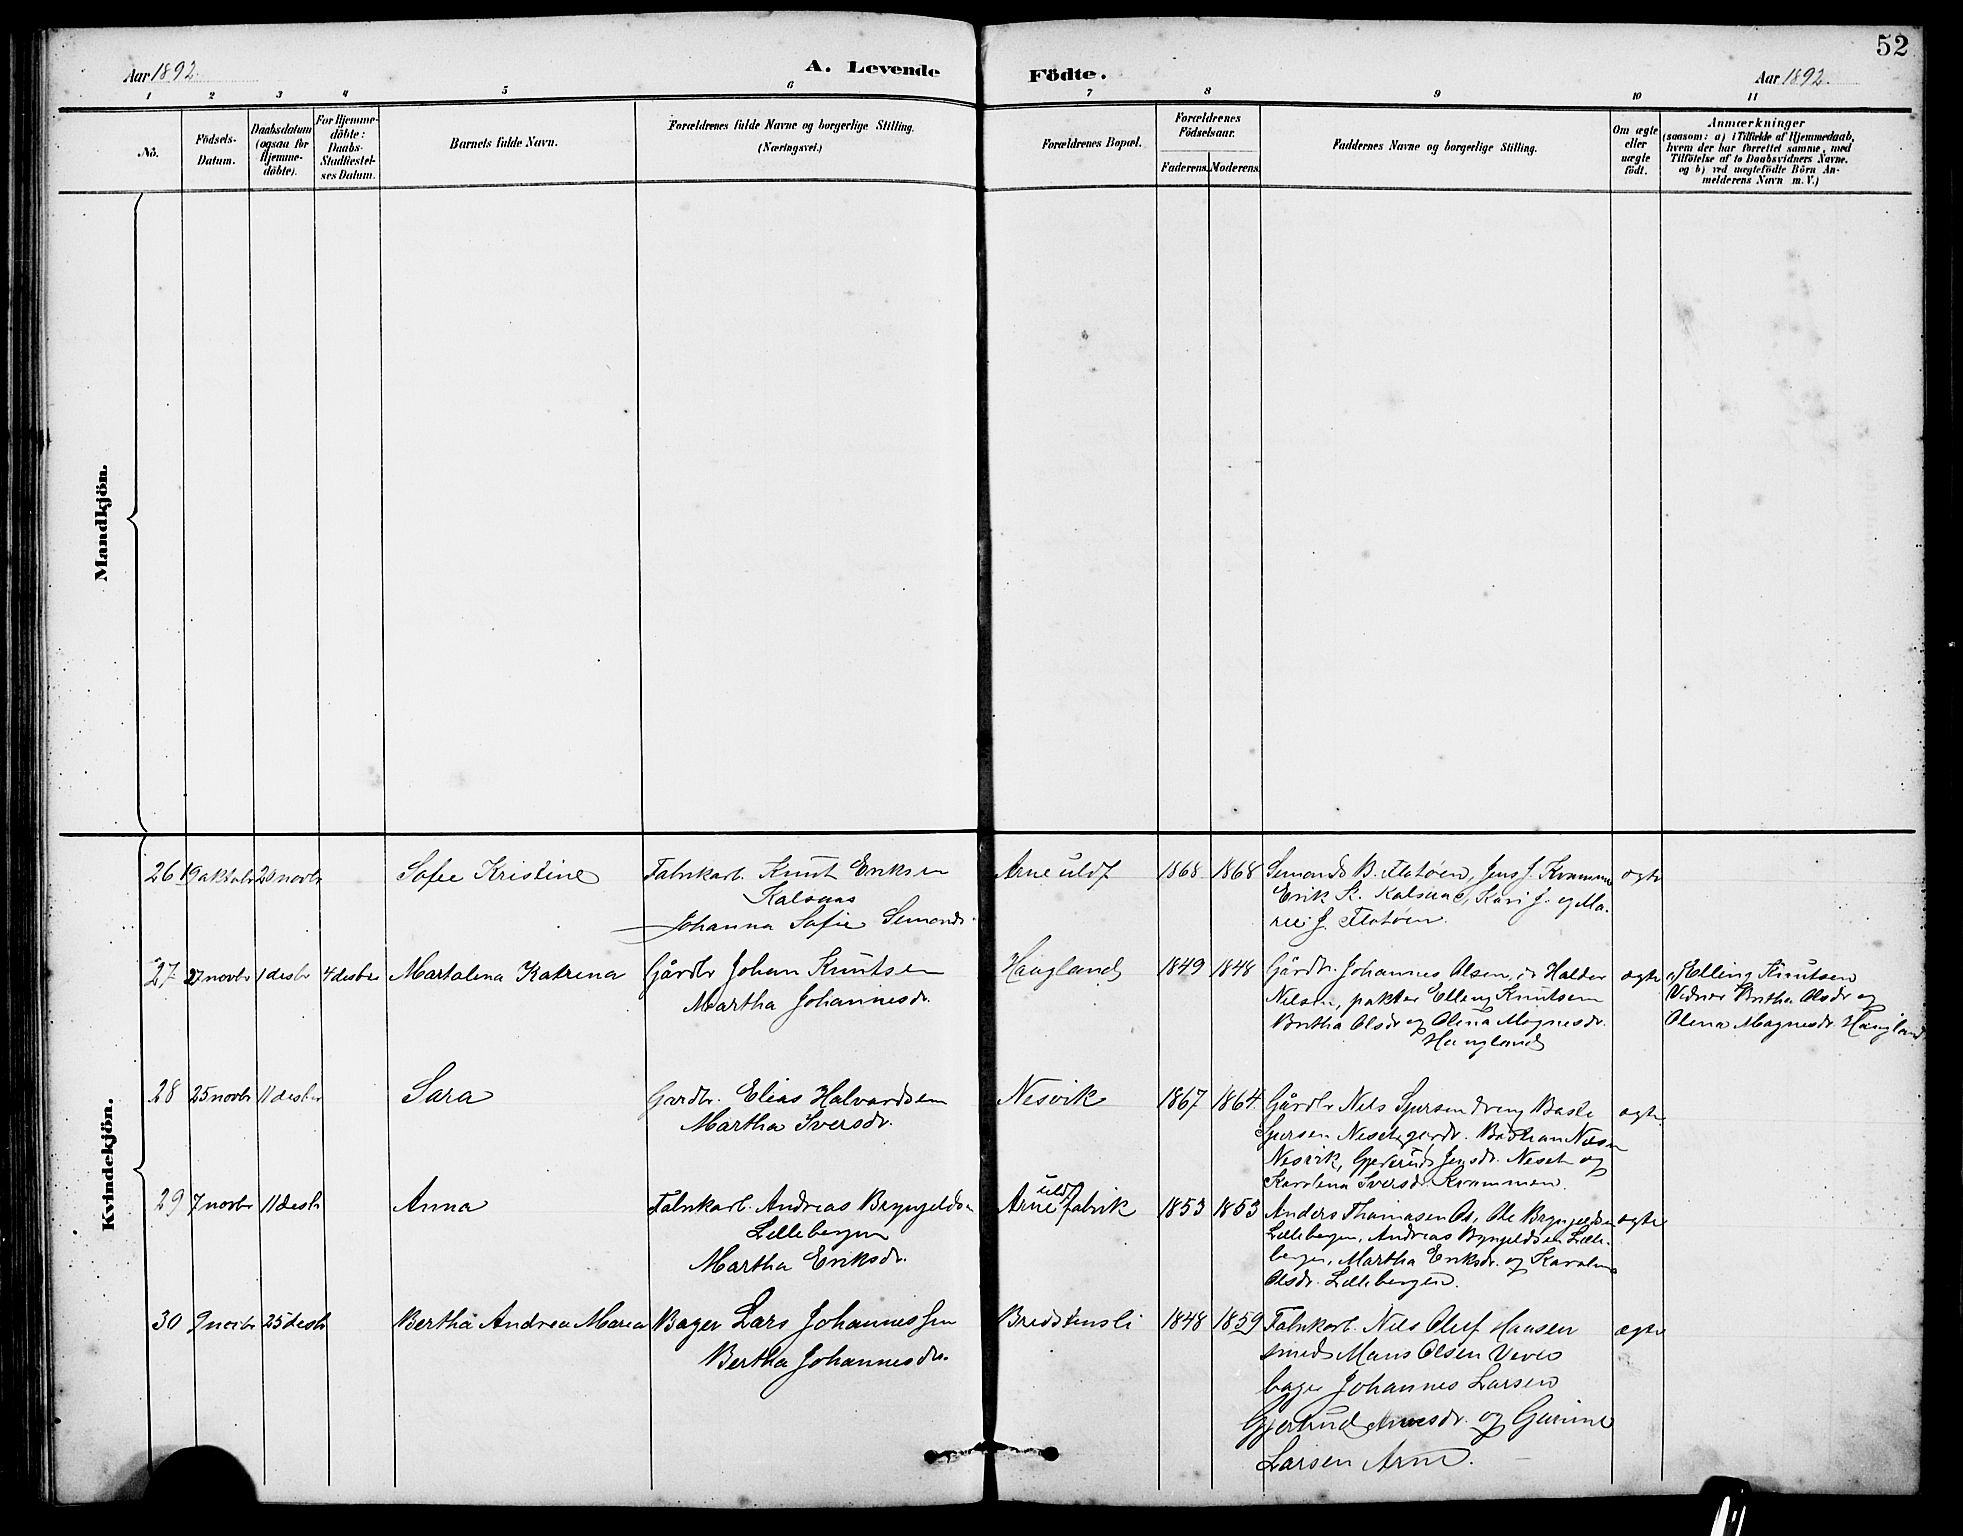 52
Aar 1892.
A. Levende
Födte.
Aar 1892.
1 2 3 4 5 6 7 8 9 10 11
No.
Födsels-Datum.
Daabsdatum (ogsaa for Hjemme-döbte).
For Hjemme-döbte: Daabs-Stadfæstel-ses Datum.
Barnets fulde Navn.
Forældrenes fulde Navne og borgerlige Stilling.
(Næringsvei.)
Forældrenes Bopæl.
Forældrenes Födselsaar.
Faderens. Moderens.
Faddernes Navne og borgerlige Stilling.
Om ægte eller uægte födt.
Anmærkninger
(saasom: a) i Tilfælde af Hjemmedaab,
hvem der har forrettet samme, med
Tilföielse af to Daabsvidners Navne.
og b) ved uægtefödte Börn An-
melderens Navn m. V.)
Mandkjön.
Kvindekjön.
26 19 oktobr 20 novbr Sofie Kristine Fabrikarb. Knut Eriksen
Kalsaas
Johanna Sofie Semonds.
Arne uldf 1868 1868 Semonds B. Flatöen, Jens J. Kvamme
Erik K. Kalsaas, Kari J. og Ma-
rie J. Flatöen.
ægte
27 27 novbr 1 desbr 4 desbr Martalena Katrina Gårdbr Johan Knutsen
Martha Johannesdr.
Haugland 1849 1848 Gårdbr. Johannes Olsen, Haldor
Nilsen, pakter Elling Knutsen
Britha Olsdr og Olina Magnesdr.
Haugland
ægte
Elling Knutsen
Vidner Britha Olsdr og
Olena Magnesdr. Haugland
28 25 novbr 11 desbr Sara Gardbr. Elias Halvardsen
Martha Iversdr.
Nesvik 1867 1864 Gårdbr Nils Sjursen dreng
Sjursen Neset
Nesvik, Gjertrud Jensdr. Neset og
Karolena Iversdr. Kvammen.
ægte
29 7 novbr 11 desbr Anna Fabrikarb. Andreas Brynjeldsen
Lillebergen
Martha Eriksdr.
Arne uldf fabrik 1853 1853 Anders Thomasen Os, Ole Brynjeldsen
Lillebergen, Andreas Brynjeldsen Lille-
bergen, Martha Eriksdr. og Karolina
Olsdr. Lillebergen.
ægte
30 9 novbr 25 desbr Bertha Andrea Marea Bager Lars Johannessen
Bertha Johannesdr.
Bredstensli 1848 1859 Fabrikarb. Nils Oluf Hansen
smed Mons Olsen
bager Johannes Larsen
Gjertrud Arnesdr. og Gurine
Larsen Arne.
ægte